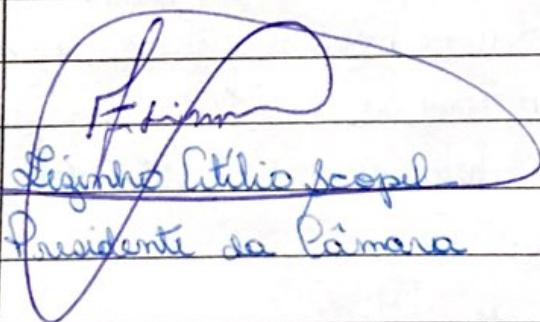 Zizinho Atílio Scopel
Presidente da Câmara